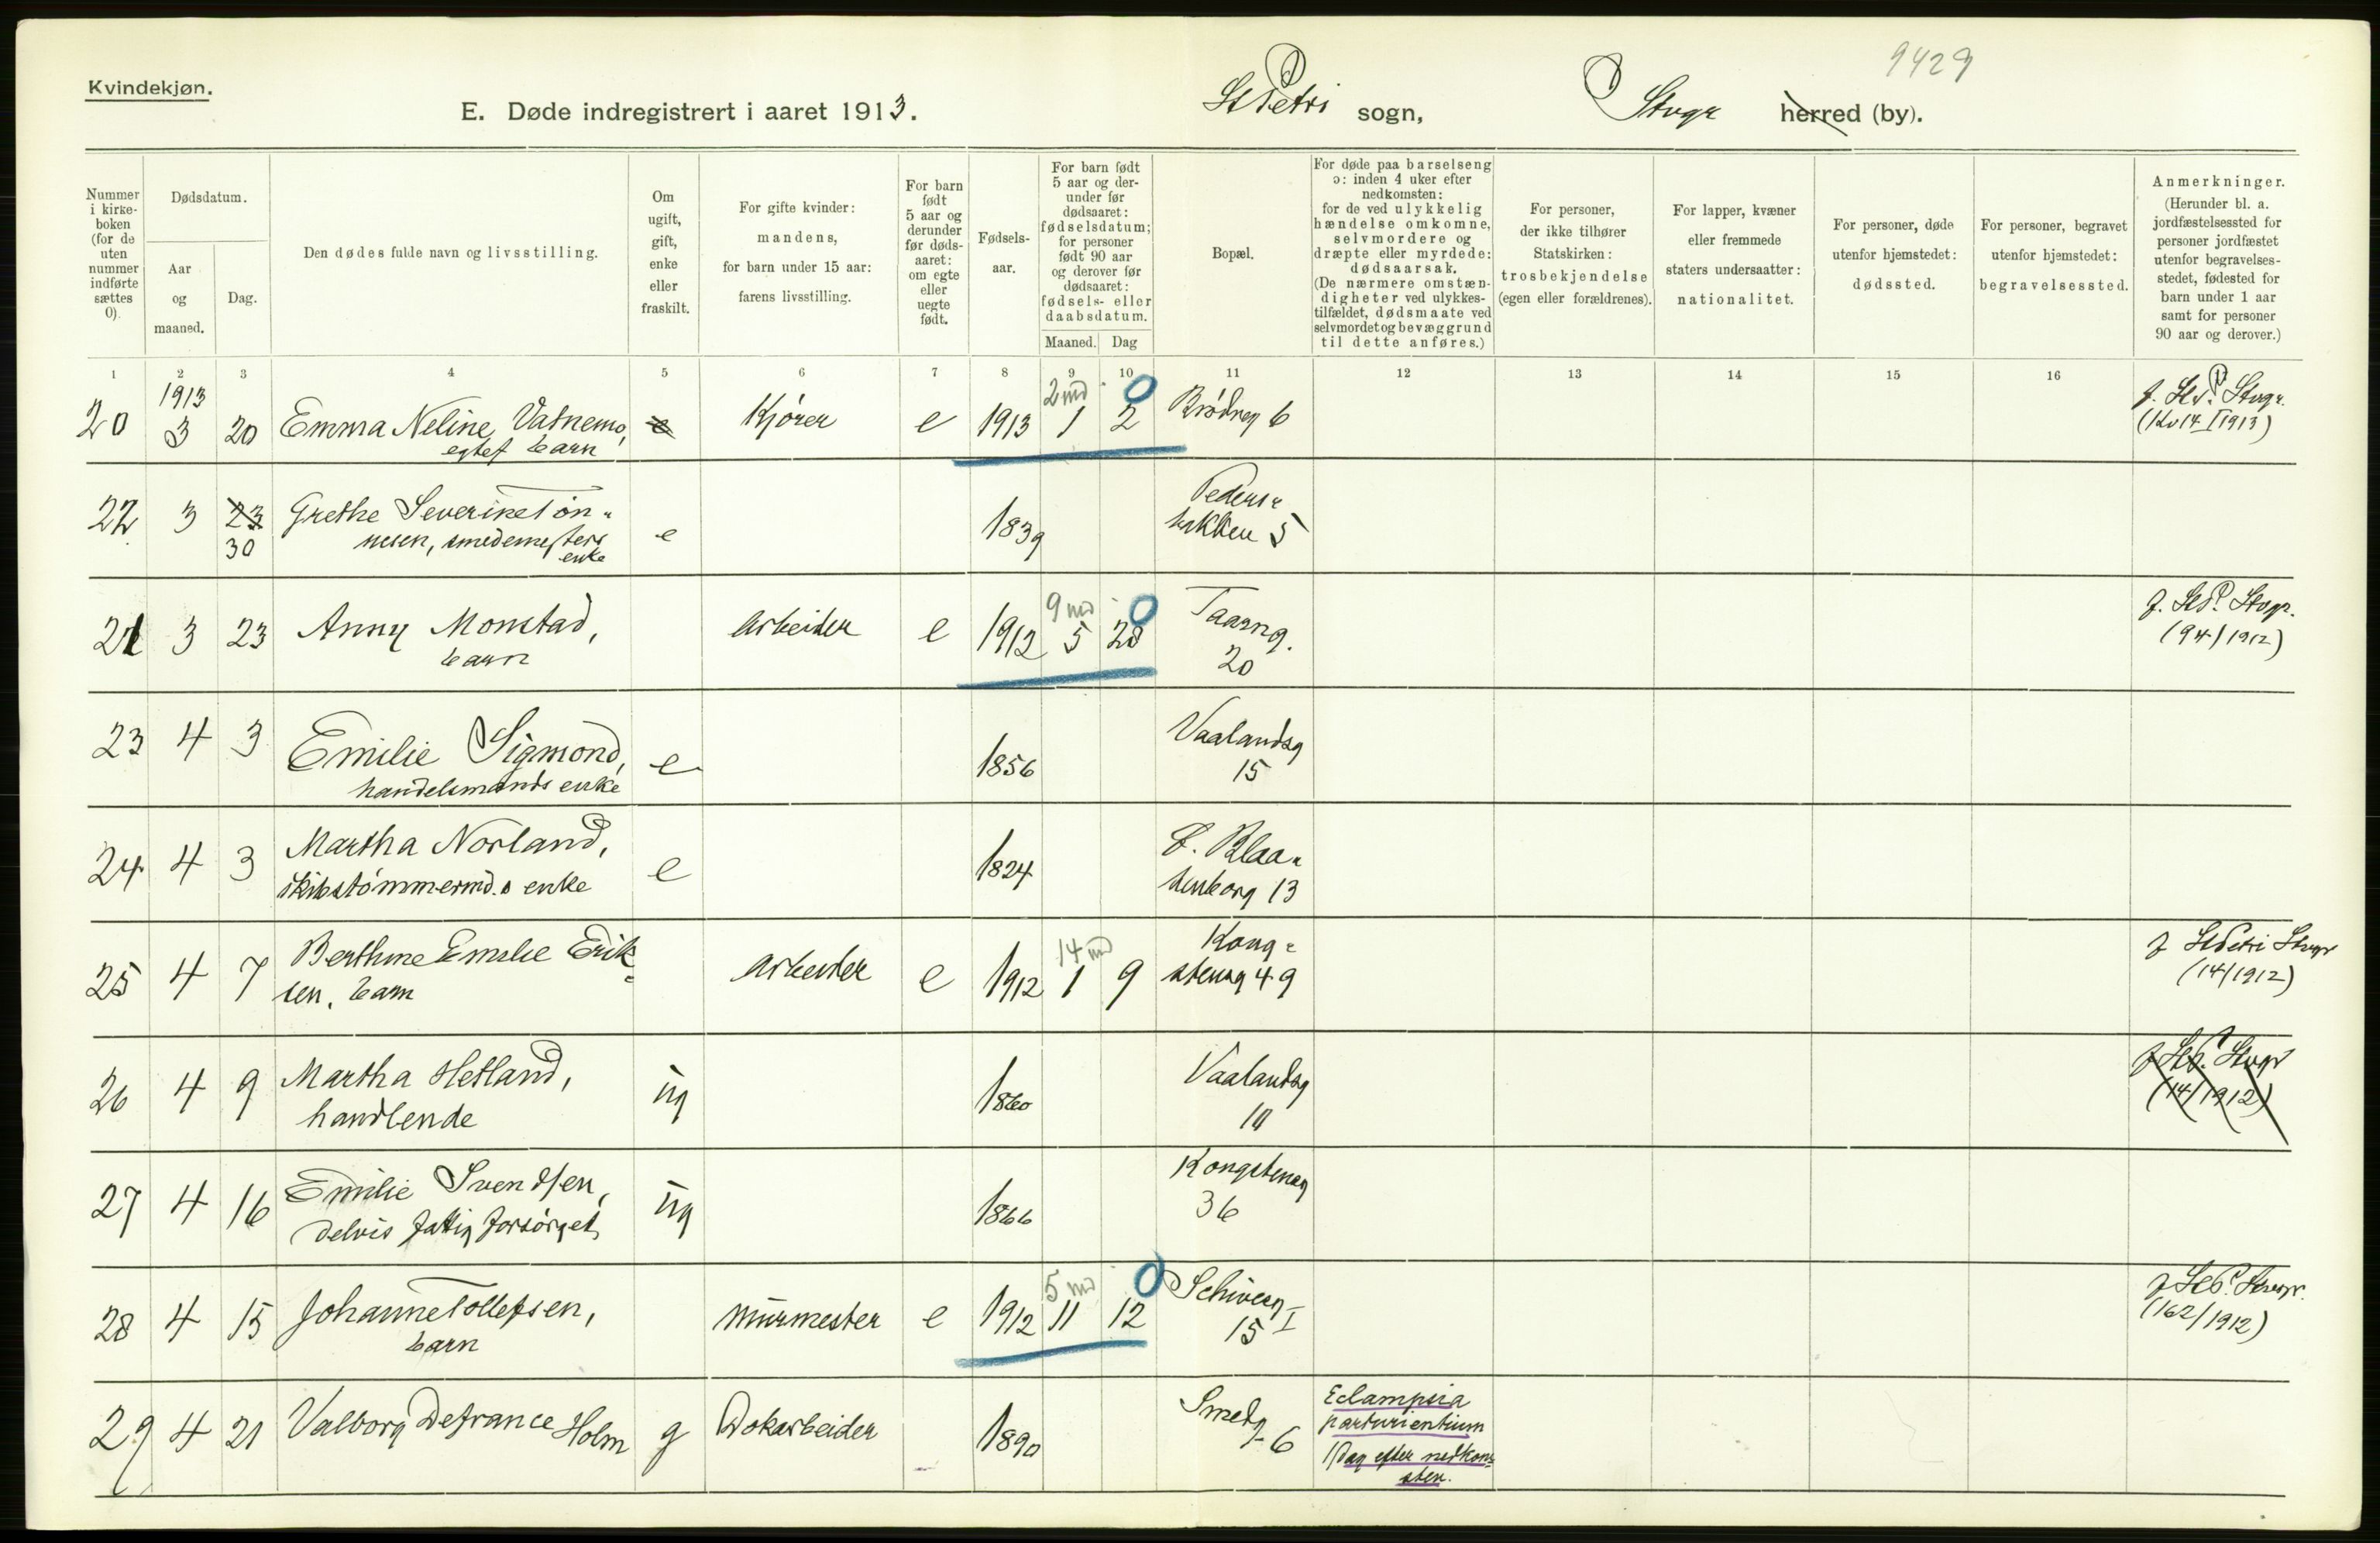 9429
Kvindekjøn.
E. Døde indregistrert i aaret 1913.
St Petri sogn,
Stvgr herred (by).
Nummer
i kirke-
boken
(for de
uten
nummer
indførte
sættes
0).
Dødsdatum.
Aar
og
maaned.
Dag.
Den dødes fulde navn og livsstilling.
Om
ugift,
gift,
enke
eller
fraskilt.
For gifte kvinder:
mandens,
for barn under 15 aar:
farens livsstilling.
For barn
født
5 aar og
derunder
før døds-
aaret:
om egte
eller
uegte
født.
Fødsels-
aar.
For barn født
5 aar og der-
under før
dødsaaret:
fødselsdatum;
for personer
født 90 aar
og derover før
dødsaaret:
fødsels- eller
daabsdatum.
Maaned. Dag
Bopæl.
For døde paa barselseng
ɔ: inden 4 uker efter
nedkomsten:
for de ved ulykkelig
hændelse omkomne,
selvmordere og
dræpte eller myrdede:
dødsaarsak.
(De nærmere omstæn-
digheter ved ulykkes-
tilfældet, dødsmaate ved
selvmordet og bevæggrund
til dette anføres.)
For personer,
der ikke tilhører
Statskirken:
trosbekjendelse
(egen eller forældrenes).
For lapper, kvæner
eller fremmede
staters undersaatter:
nationalitet.
For personer, døde
utenfor hjemstedet:
dødssted.
For personer, begravet
utenfor hjemstedet:
begravelsessted.
Anmerkninger.
(Herunder bl. a.
jordfæstelsessted for
personer jordfæstet
utenfor begravelses-
stedet, fødested for
barn under 1 aar
samt for personer
90 aar og derover.)
1 2 3 4 5 6 7 8 9 10 11 12 13 14 15 16
1913 2 md 0
20 3 20 Emma Neline Vatnemo, e Kjører e 1913 1 2 Brødreg 6 f. St. P. Stvgr.
egtef barn (Kv 14 I 1913)
22 3 23 Grethe Severine Tøn- e 1839 Peders-
30 nesen, smedemesters bakken 5
enke
9 md 0
21 3 23 Anny Monstad, arbeider e 1912 5 28 Taarng. f. St. P. Stvgr.
barn 20 (94/1912)
23 4 3 Emilie Sigmond, e 1856 Vaalandsg
handelsmands enke 15
24 4 3 Martha Norland, e 1824 Ø. Blaa-
skibstømmermd.s enke senborg 13
14 md
25 4 7 Berthine Emelie Erik- arbeider e 1912 1 9 Kong- f St Petri Stvgr
sen, barn stensg 49 (14/1912)
26 4 9 Martha Hetland, ug 1860 Vaalandsg f St. P. Stvgr
handlende 10 (14/1912)
27 4 16 Emilie Svendsen, ug 1866 Kongstensg
delvis fattig forsørget 36
5 md 0
28 4 15 Johanne Tollefsen, murmester e 1912 11 12 Schiveg I f St P. Stvgr.
barn 15 (162/1912)
29 4 21 Valborg Defrance Holm g Dokarbeider 1890 Smedg 6 Eclampsia
parturientium
1 Dag efter nedkom-
sten.